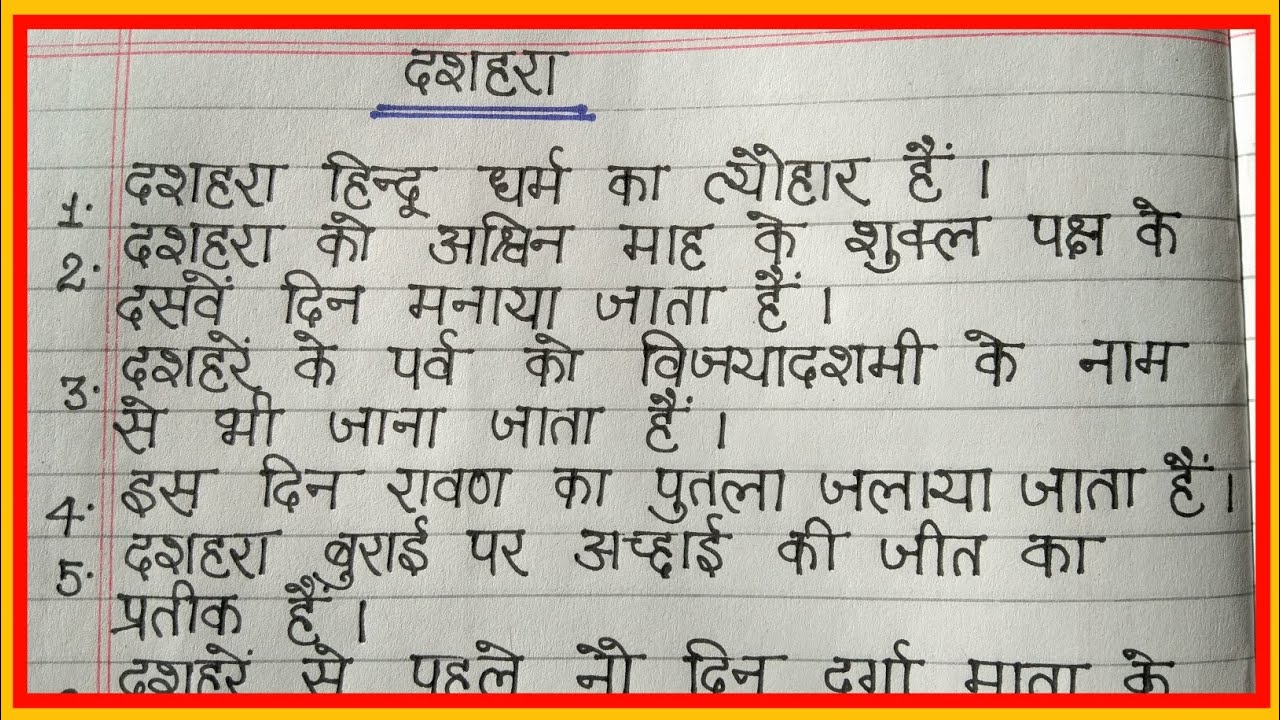 दशहरा
1. दशहरा हिन्दू धर्म का त्यौहार हैं ।
2. दशहरा को अश्विन माह के शुक्ल पक्ष के
दसवें दिन मनाया जाता हैं ।
3. दशहरें के पर्व को विजयादशमी के नाम
से भी जाना जाता हैं ।
4. इस दिन रावण का पुतला जलाया जाता हैं ।
5. दशहरा बुराई पर अच्छाई की जीत का
प्रतीक हैं ।
दशहरें से पहले नौ दिन दुर्गा माता के